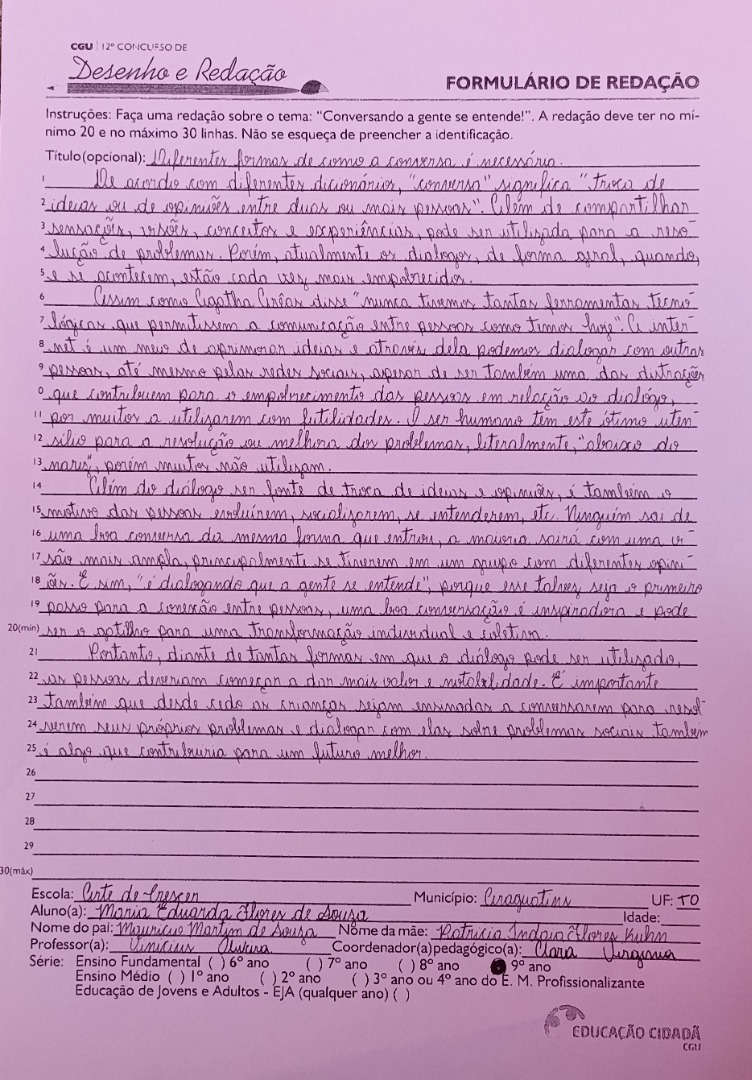 CGU | 12º CONCURSO DE
Desenho e Redação
FORMULÁRIO DE REDAÇÃO
Instruções: Faça uma redação sobre o tema: "Conversando a gente se entende!". A redação deve ter no mí-
nimo 20 e no máximo 30 linhas. Não se esqueça de preencher a identificação.
Título (opcional): Diferentes formas de como a conversa é necessária.
1 De acordo com diferentes dicionários, "conversa" significa "troca de
2 ideias ou de opiniões entre duas ou mais pessoas". Além de compartilhar
3 sensações, visões, conceitos e experiências, pode ser utilizada para a reso-
4 lução de problemas. Porém, atualmente os dialogos, de forma geral, quando,
5 e se acontecem, estão cada vez mais empobrecidos.
6 Assim como Agatha Arêas disse "nunca tivemos tantas ferramentas tecno-
7 lógicas que permitissem a comunicação entre pessoas como temos hoje". A inter-
8 net é um meio de aprimorar ideias e através dela podemos dialogar com outras
9 pessoas, até mesmo pelas redes sociais, apesar de ser também uma das distrações
0 que contribuem para o empobrecimento das pessoas em relação ao dialógo,
11 por muitos a utilizarem com futilidades. O ser humano tem este ótimo uten-
12 sílio para a resolução ou melhora dos problemas, literalmente, "abaixo do
13 nariz", porém muitos não utilizam.
14 Além do diálogo ser fonte de troca de ideias e opiniões, é também o
15 motivo das pessoas evoluírem, socializarem, se entenderem, etc. Ninguém sai de
16 uma boa conversa da mesma forma que entrou, a maioria sairá com uma vi-
17 são mais ampla, principalmente se tiverem em um grupo com diferentes opini-
18 ões. E sim, "é dialogando que a gente se entende", porque esse talvez seja o primeiro
19 passo para a conexão entre pessoas, uma boa conversação é inspiradora e pode
20(min) ser o gatilho para uma transformação individual e coletiva.
21 Portanto, diante de tantas formas em que o diálogo pode ser utilizado,
22 as pessoas deveriam começar a dar mais valor e notabilidade. É importante
23 também que desde cedo as crianças sejam ensinadas a conversarem para resol-
24 verem seus próprios problemas e dialogar com elas sobre problemas sociais também
25 é algo que contribuiria para um futuro melhor.
26
27
28
29
30(máx)
Escola: Arte de Crescer Município: Araguatins UF: TO
Aluno(a): Maria Eduarda Flores de Souza Idade:
Nome do pai: Mauricio Martins de Souza Nome da mãe: Patricia Indaia Flores Kuhn
Professor(a): Vinicius Coordenador(a) pedagógico(a): Clara Virginia
Série: Ensino Fundamental ( ) 6º ano ( ) 7º ano ( ) 8º ano 9º ano
Ensino Médio ( ) 1º ano ( ) 2º ano ( ) 3º ano ou 4º ano do E. M. Profissionalizante
Educação de Jovens e Adultos - EJA (qualquer ano) ( )
EDUCAÇÃO CIDADÃ
CGU